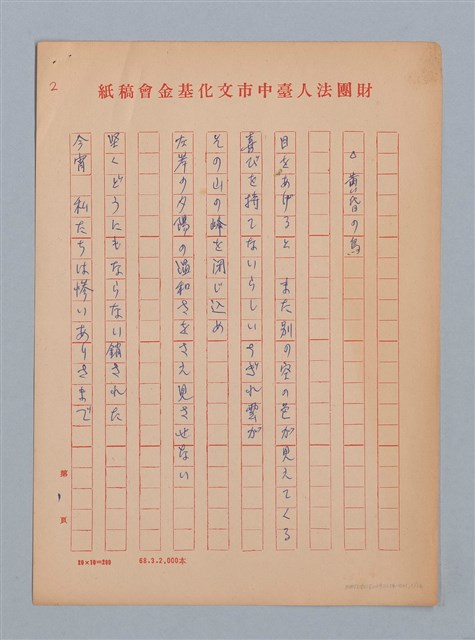 2
財團法人臺中市文化基金會稿紙
△黄昏の鳥
目をあげると　また別の空の色が見えてくる
喜びを持てないらしいちぎれ雲が
その山の峰を閉じ込め
左岸の夕陽の温和ささえ見させない
堅くどうにもならない鎖された
今宵　私たちは惨いありさまで
第　頁
20×10=200
68.3.2,000本